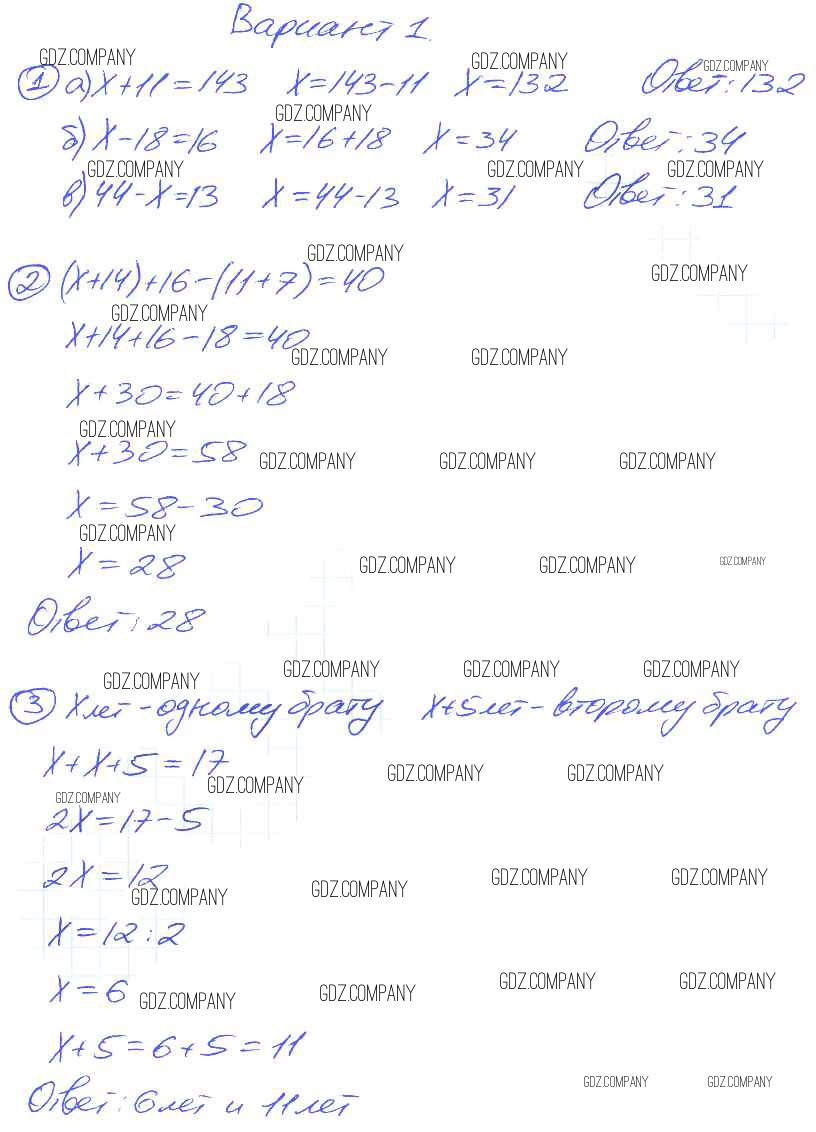 Вариант 1.
GDZ.COMPANY GDZ.COMPANY GDZ.COMPANY
① а) x+11=143 x=143-11 x=132 Ответ: 132
GDZ.COMPANY
б) x-18=16 x=16+18 x=34 Ответ: 34
GDZ.COMPANY GDZ.COMPANY GDZ.COMPANY
в) 44-x=13 x=44-13 x=31 Ответ: 31
GDZ.COMPANY
② (x+14)+16-(11+7)=40 GDZ.COMPANY
GDZ.COMPANY
x+14+16-18=40
GDZ.COMPANY GDZ.COMPANY
x+30=40+18
GDZ.COMPANY
x+30=58 GDZ.COMPANY GDZ.COMPANY GDZ.COMPANY
x=58-30
GDZ.COMPANY
x=28 GDZ.COMPANY GDZ.COMPANY GDZ.COMPANY
Ответ: 28
GDZ.COMPANY GDZ.COMPANY GDZ.COMPANY GDZ.COMPANY
③ x лет - одному брату x+5 лет - второму брату
x+x+5=17
GDZ.COMPANY GDZ.COMPANY GDZ.COMPANY
GDZ.COMPANY
2x=17-5
2x=12
GDZ.COMPANY GDZ.COMPANY GDZ.COMPANY GDZ.COMPANY
x=12:2
x=6 GDZ.COMPANY GDZ.COMPANY GDZ.COMPANY GDZ.COMPANY
x+5=6+5=11
GDZ.COMPANY GDZ.COMPANY
Ответ: 6 лет и 11 лет